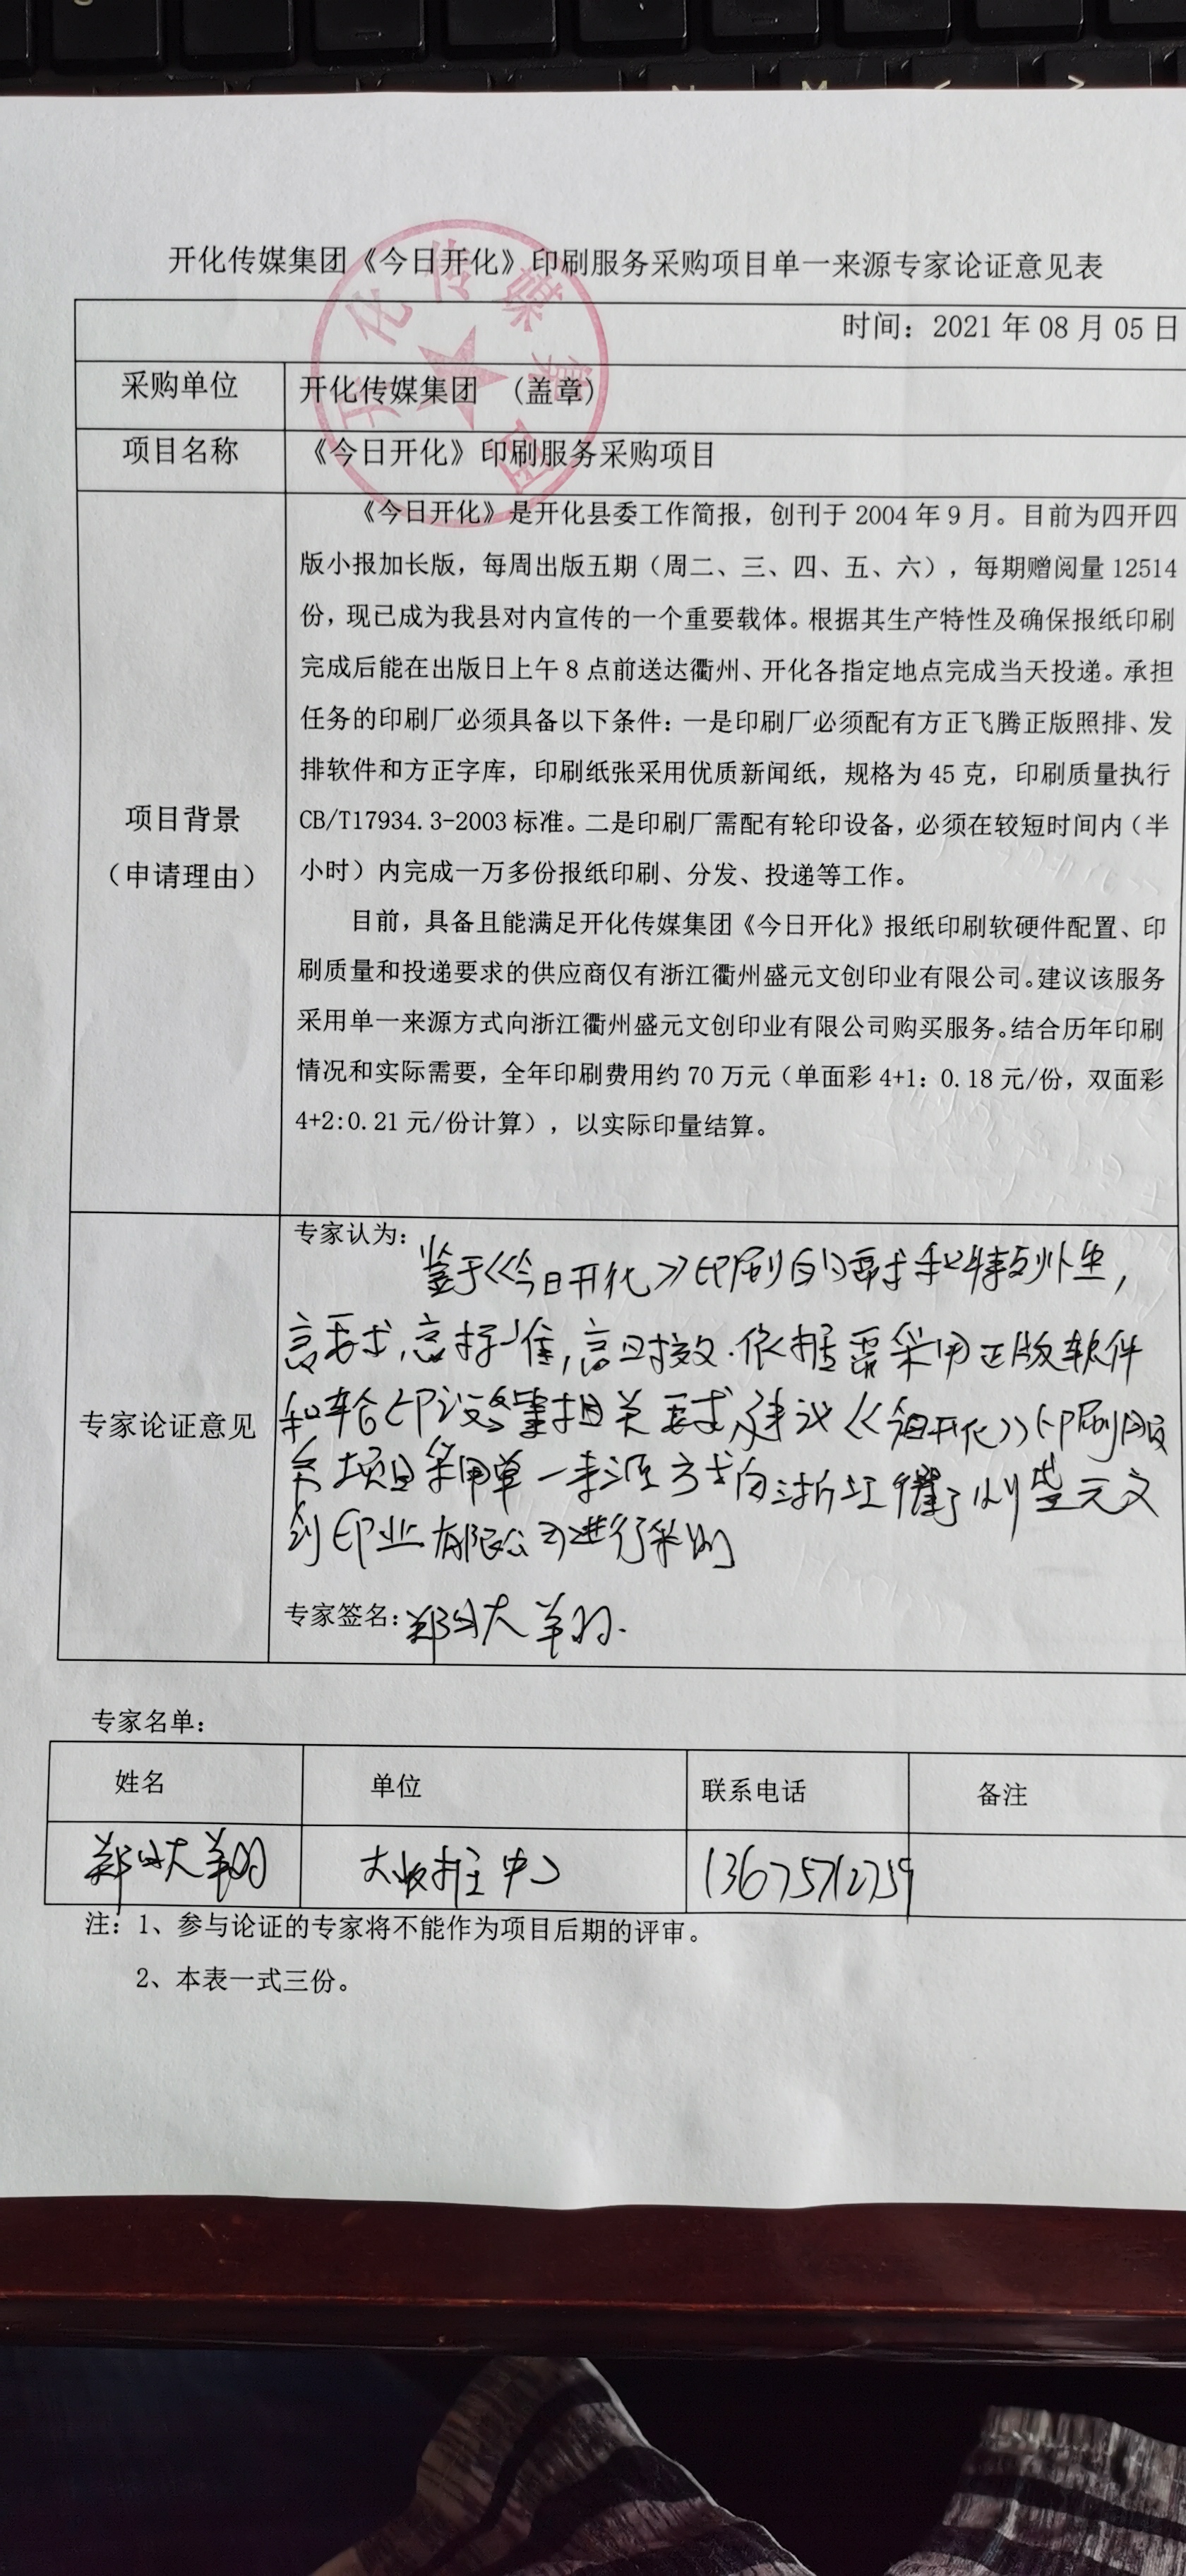 N M < >
开化传媒集团《今日开化》印刷服务采购项目单一来源专家论证意见表
时间：2021年08月05日
采购单位
开化传媒集团 （盖章）
开化传媒集团
项目名称
《今日开化》印刷服务采购项目
项目背景
（申请理由）
《今日开化》是开化县委工作简报，创刊于2004年9月。目前为四开四
版小报加长版，每周出版五期（周二、三、四、五、六），每期赠阅量12514
份，现已成为我县对内宣传的一个重要载体。根据其生产特性及确保报纸印刷
完成后能在出版日上午8点前送达衢州、开化各指定地点完成当天投递。承担
任务的印刷厂必须具备以下条件：一是印刷厂必须配有方正飞腾正版照排、发
排软件和方正字库，印刷纸张采用优质新闻纸，规格为45克，印刷质量执行
CB/T17934.3-2003标准。二是印刷厂需配有轮印设备，必须在较短时间内（半
小时）内完成一万多份报纸印刷、分发、投递等工作。
目前，具备且能满足开化传媒集团《今日开化》报纸印刷软硬件配置、印
刷质量和投递要求的供应商仅有浙江衢州盛元文创印业有限公司。建议该服务
采用单一来源方式向浙江衢州盛元文创印业有限公司购买服务。结合历年印刷
情况和实际需要，全年印刷费用约70万元（单面彩4+1：0.18元/份，双面彩
4+2:0.21元/份计算），以实际印量结算。
专家论证意见
专家认为：
鉴于《今日开化》印刷的要求和特殊性，
高要求，高标准，高时效.依据需采用正版软件
和轮印设备相关要求，建议《今日开化》印刷服
务项目采用单一来源方式向浙江衢州盛元文
创印业有限公司进行采购
专家签名：郑
专家名单：
姓名
单位
联系电话
备注
郑
中心
注：1、参与论证的专家将不能作为项目后期的评审。
2、本表一式三份。